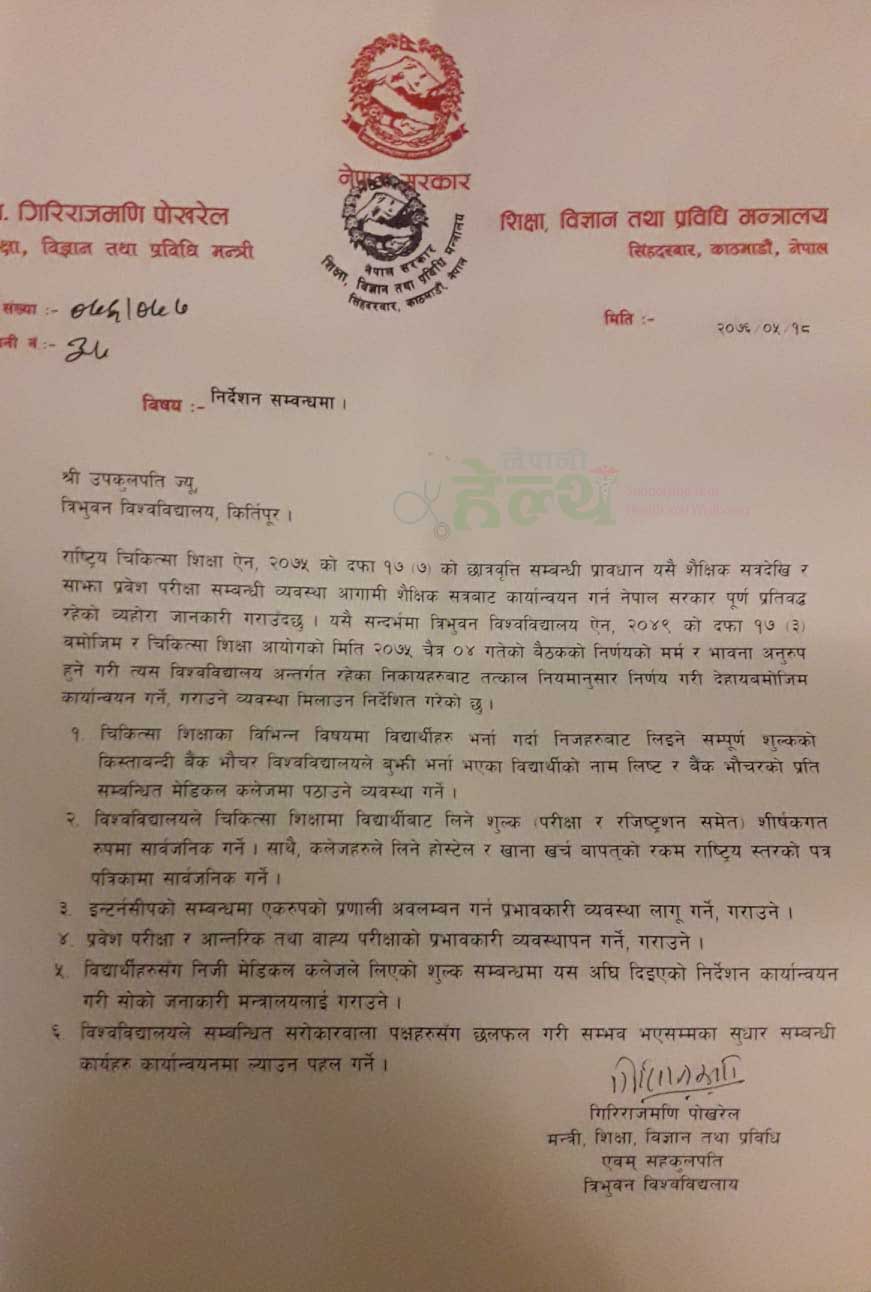 नेपाल सरकार
गिरिराजमणि पोखरेल
शिक्षा, विज्ञान तथा प्रविधि मन्त्रालय
विज्ञान तथा प्रविधि मन्त्री
सिंहदरबार, काठमाडौं, नेपाल
नेपाल सरकार
शिक्षा, विज्ञान तथा प्रविधि मन्त्रालय
सिंहदरबार, काठमाडौं, नेपाल
संख्या :- ०७६/०७७
मिति :- २०७६/०५/१८
नं :-
विषय :- निर्देशन सम्वन्धमा ।
नेपाली
हेल्थ
श्री उपकुलपति ज्यू,
त्रिभुवन विश्वविद्यालय, किर्तिपूर ।
राष्ट्रिय चिकित्सा शिक्षा ऐन, २०७५ को दफा १७ (७) को छात्रवृत्ति सम्बन्धी प्रावधान यसै शैक्षिक सत्रदेखि र
साझा प्रवेश परीक्षा सम्बन्धी व्यवस्था आगामी शैक्षिक सत्रबाट कार्यान्वयन गर्न नेपाल सरकार पूर्ण प्रतिवद्ध
रहेको व्यहोरा जानकारी गराउँदछु । यसै सन्दर्भमा त्रिभुवन विश्वविद्यालय ऐन, २०४९ को दफा १७ (३)
वमोजिम र चिकित्सा शिक्षा आयोगको मिति २०७५ चैत्र ०४ गतेको बैठकको निर्णयको मर्म र भावना अनुरुप
हुने गरी त्यस विश्वविद्यालय अन्तर्गत रहेका निकायहरुबाट तत्काल नियमानुसार निर्णय गरी देहायबमोजिम
कार्यान्वयन गर्ने, गराउने व्यवस्था मिलाउन निर्देशित गरेको छु ।
१. चिकित्सा शिक्षाका विभिन्न विषयमा विद्यार्थीहरु भर्ना गर्दा निजहरुबाट लिइने सम्पूर्ण शुल्कको
किस्ताबन्दी बैंक भौचर विश्वविद्यालयले बुझी भर्ना भएका विद्यार्थीको नाम लिष्ट र बैंक भौचरको प्रति
सम्बन्धित मेडिकल कलेजमा पठाउने व्यवस्था गर्ने ।
२. विश्वविद्यालयले चिकित्सा शिक्षामा विद्यार्थीबाट लिने शुल्क (परीक्षा र रजिष्ट्रशन समेत) शीर्षकगत
रुपमा सार्वजनिक गर्ने । साथै, कलेजहरुले लिने होस्टेल र खाना खर्च बापत्को रकम राष्ट्रिय स्तरको पत्र
पत्रिकामा सार्वजनिक गर्ने ।
३. इन्टर्नसीपको सम्बन्धमा एकरुपको प्रणाली अवलम्बन गर्न प्रभावकारी व्यवस्था लागू गर्ने, गराउने ।
४. प्रवेश परीक्षा र आन्तरिक तथा वाह्य परीक्षाको प्रभावकारी व्यवस्थापन गर्ने, गराउने ।
५. विद्यार्थीहरुसंग निजी मेडिकल कलेजले लिएको शुल्क सम्बन्धमा यस अघि दिइएको निर्देशन कार्यान्वयन
गरी सोको जनाकारी मन्त्रालयलाई गराउने ।
६. विश्वविद्यालयले सम्बन्धित सरोकारवाला पक्षहरुसंग छलफल गरी सम्भव भएसम्मका सुधार सम्बन्धी
कार्यहरु कार्यान्वयनमा ल्याउन पहल गर्ने ।
गिरिराजमणि पोखरेल
मन्त्री, शिक्षा, विज्ञान तथा प्रविधि
एवम् सहकुलपति
त्रिभुवन विश्वविद्यलाय